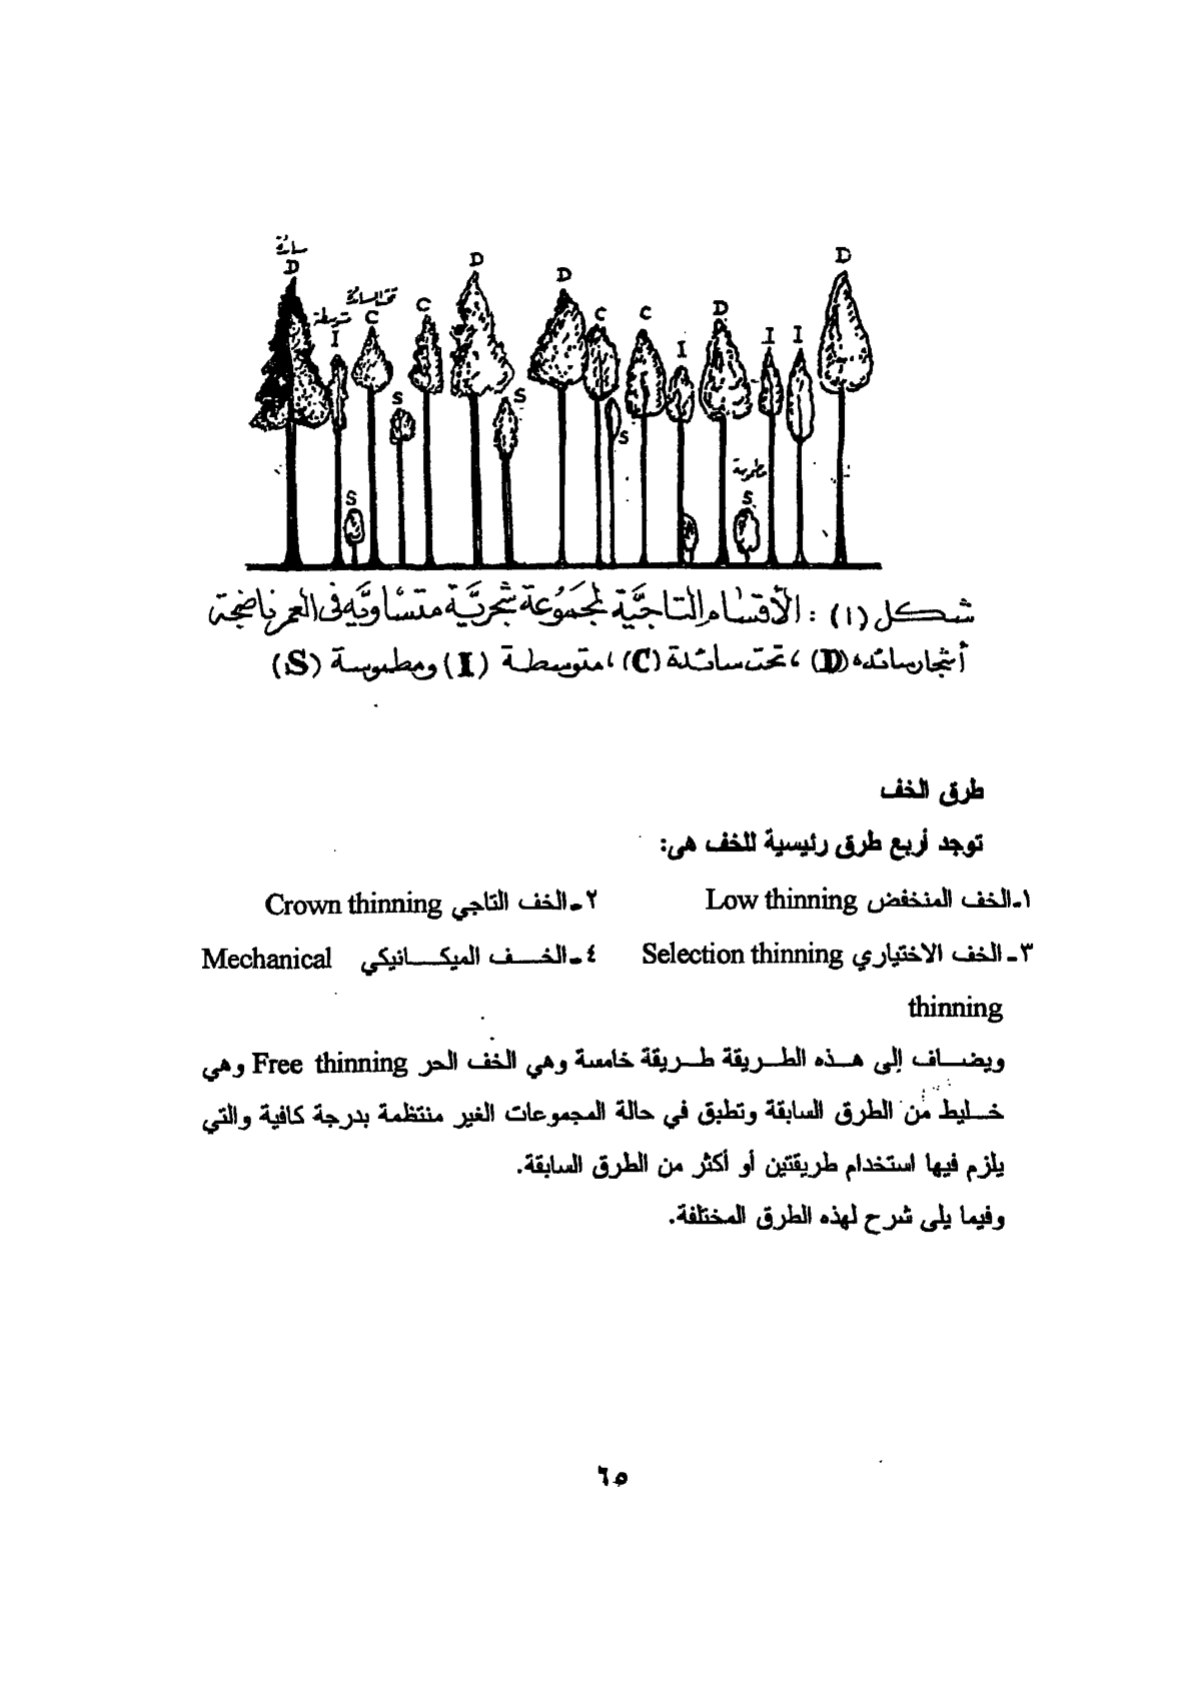 سائدة
D D D D
تحت السائدة
متوسطة
C C C C D
I I I I
S S S
مطموسة
S S
شكل (١) : الأقسام التاجية لمجموعة شجرية متساوية فى العمر ناضجة
أشجار سائده (D) ، تحت سائدة (C) ، متوسطة (I) ومطموسة (S)
طرق الخف
توجد أربع طرق رئيسية للخف هى:
١-الخف المنخفض Low thinning ٢-الخف التاجي Crown thinning
٣- الخف الاختياري Selection thinning ٤-الخف الميكانيكي Mechanical
thinning
ويضاف إلى هذه الطريقة طريقة خامسة وهي الخف الحر Free thinning وهي
خليط من الطرق السابقة وتطبق في حالة المجموعات الغير منتظمة بدرجة كافية والتي
يلزم فيها استخدام طريقتين أو أكثر من الطرق السابقة.
وفيما يلى شرح لهذه الطرق المختلفة.
٦٥